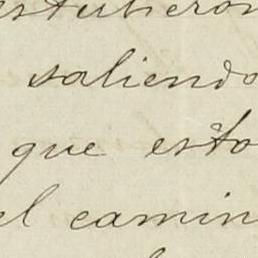 estubieron
saliendo
que esto
el camin